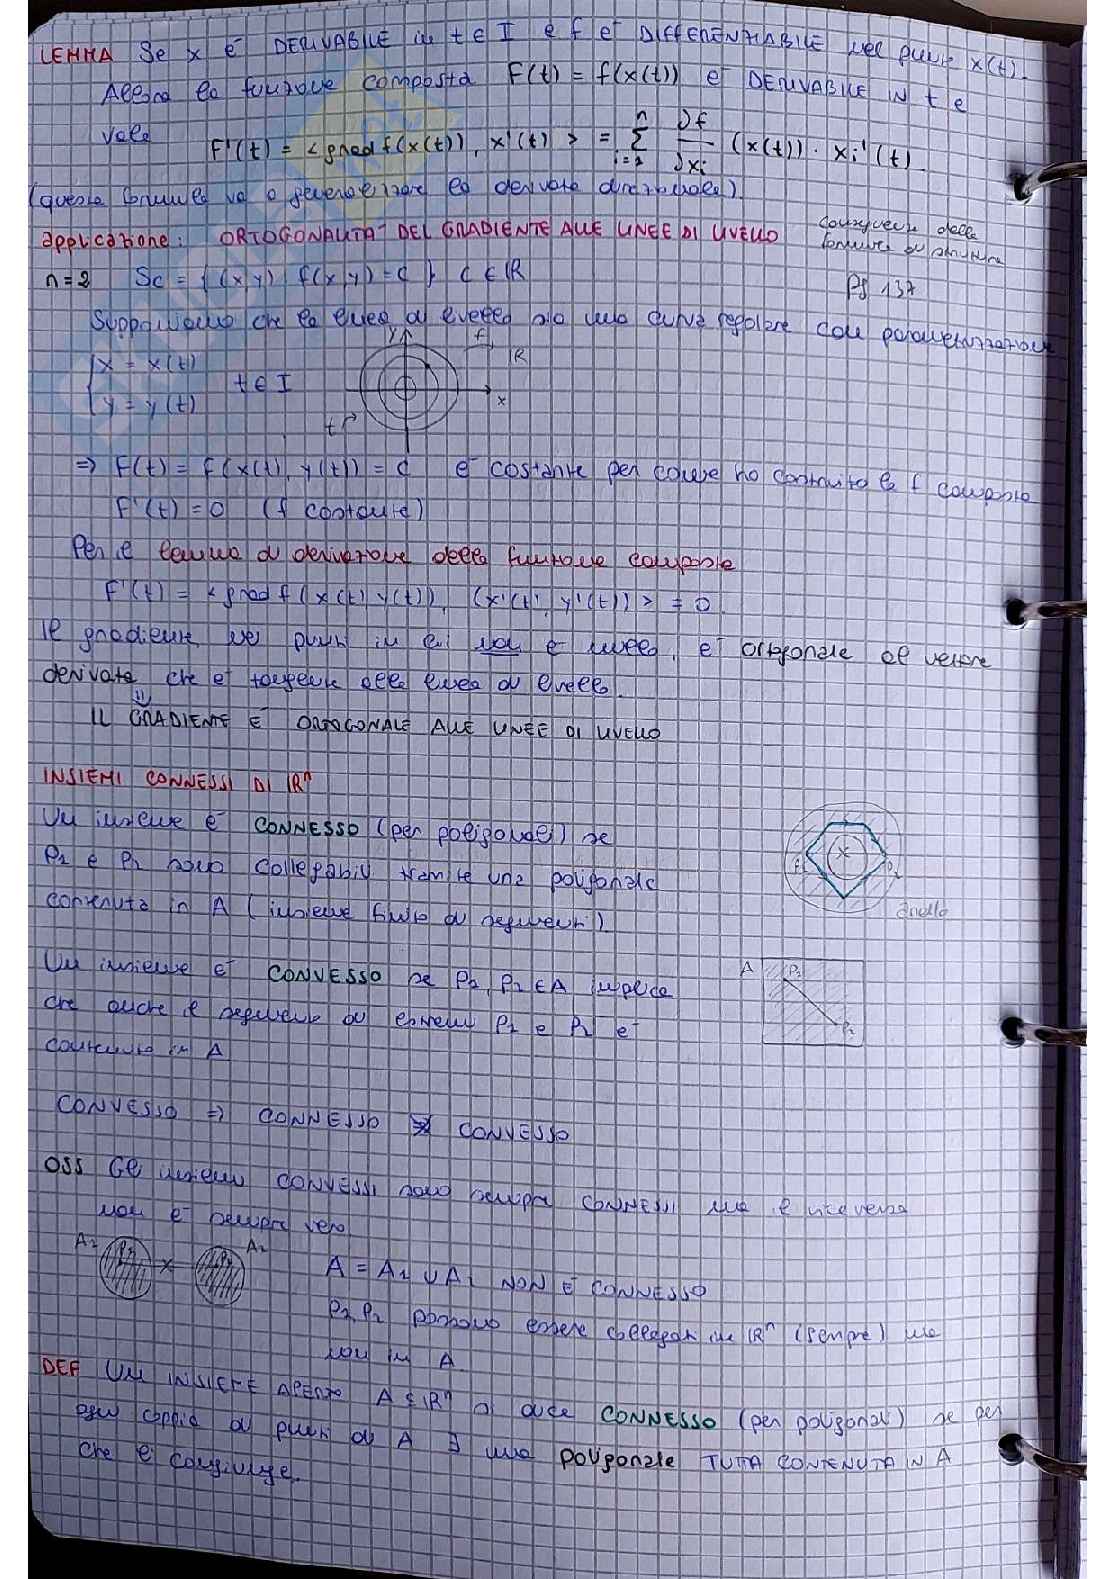 LEMMA Se x è DERIVABILE in t ∈ I e f è DIFFERENZIABILE nel punto x(t).
Allora la funzione composta F(t) = f(x(t)) è DERIVABILE IN t e
vale
F'(t) = < grad f(x(t)), x'(t) > = \sum_{i=1}^{n} \frac{∂f}{∂xi} (x(t)) · xi'(t)
(questa formula va a generalizzare la derivata direzionale).
applicazione: ORTOGONALITA' DEL GRADIENTE ALLE LINEE DI LIVELLO
conseguenza della
formula di
Pg 137
n=2 Sc = { (x,y) f(x,y) = c } c ∈ ℝ
Supponiamo che la linea di livello sia una curva regolare con parametrizzazione
{ x = x(t)
y = y(t)
t ∈ I
y
f
ℝ
x
t
=> F(t) = f(x(t), y(t)) = c è costante per come ho costruito la f composta
F'(t) = 0 (f costante)
Per il lemma di derivazione della funzione composta
F'(t) = < grad f(x(t), y(t)), (x'(t), y'(t)) > = 0
Il gradiente, nei punti in cui non è nullo, è ortogonale al vettore
derivata che è tangente alla linea di livello.
⇓
IL GRADIENTE È ORTOGONALE ALLE LINEE DI LIVELLO
INSIEMI CONNESSI DI ℝⁿ
Un insieme è CONNESSO (per poligonali) se
P1 e P2 sono collegabili tramite una poligonale
contenuta in A (insieme finito di segmenti)
P1
P2
anello
Un insieme è CONVESSO se P1, P2 ∈ A implica
che anche il segmento di estremi P1 e P2 è
contenuto in A
A
P1
P2
CONVESSO => CONNESSO ⇏ CONVESSO
OSS Gli insiemi CONVESSI sono sempre CONNESSI ma il viceversa
non è sempre vero
A1
P1
X
P2
A2
A = A1 ∪ A2 NON È CONNESSO
P1, P2 possono essere collegati in ℝⁿ (sempre) ma
non in A
DEF Un INSIEME APERTO A ⊆ ℝⁿ si dice CONNESSO (per poligonali) se per
ogni coppia di punti di A ∃ una poligonale TUTTA CONTENUTA IN A
che li congiunge.